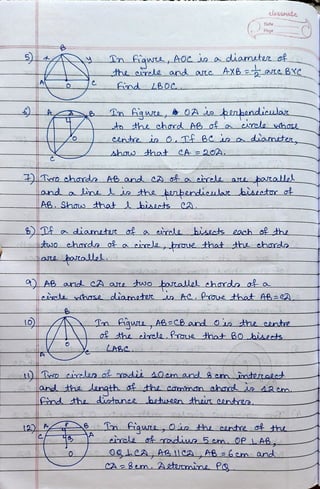 classmate
Date
Page
5) In figure, AOC is a diameter of
the circle and arc AXB = 1/2 arc BYC
Find ∠BOC.
B
x
y
A
O
C
6) In figure, OD is perpendicular
to the chord AB of a circle whose
centre is O. If BC is a diameter,
show that CA = 2OD.
A
D
B
O
C
7) Two chords AB and CD of a circle are parallel
and a line l is the perpendicular bisector of
AB. Show that l bisects CD.
8) If a diameter of a circle bisects each of the
two chords of a circle, prove that the chords
are parallel.
9) AB and CD are two parallel chords of a
circle whose diameter is AC. Prove that AB=CD
10) In figure, AB=CB and O is the centre
of the circle. Prove that BO bisects
∠ABC.
B
O
A
C
11) Two circles of radii 10cm and 8cm intersect
and the length of the common chord is 12cm.
Find the distance between their centres.
12) In figure, O is the centre of the
circle of radius 5cm. OP ⊥ AB,
OQ ⊥ CD, AB || CD, AB = 6cm and
CD = 8cm. Determine PQ
A
P
B
C
O